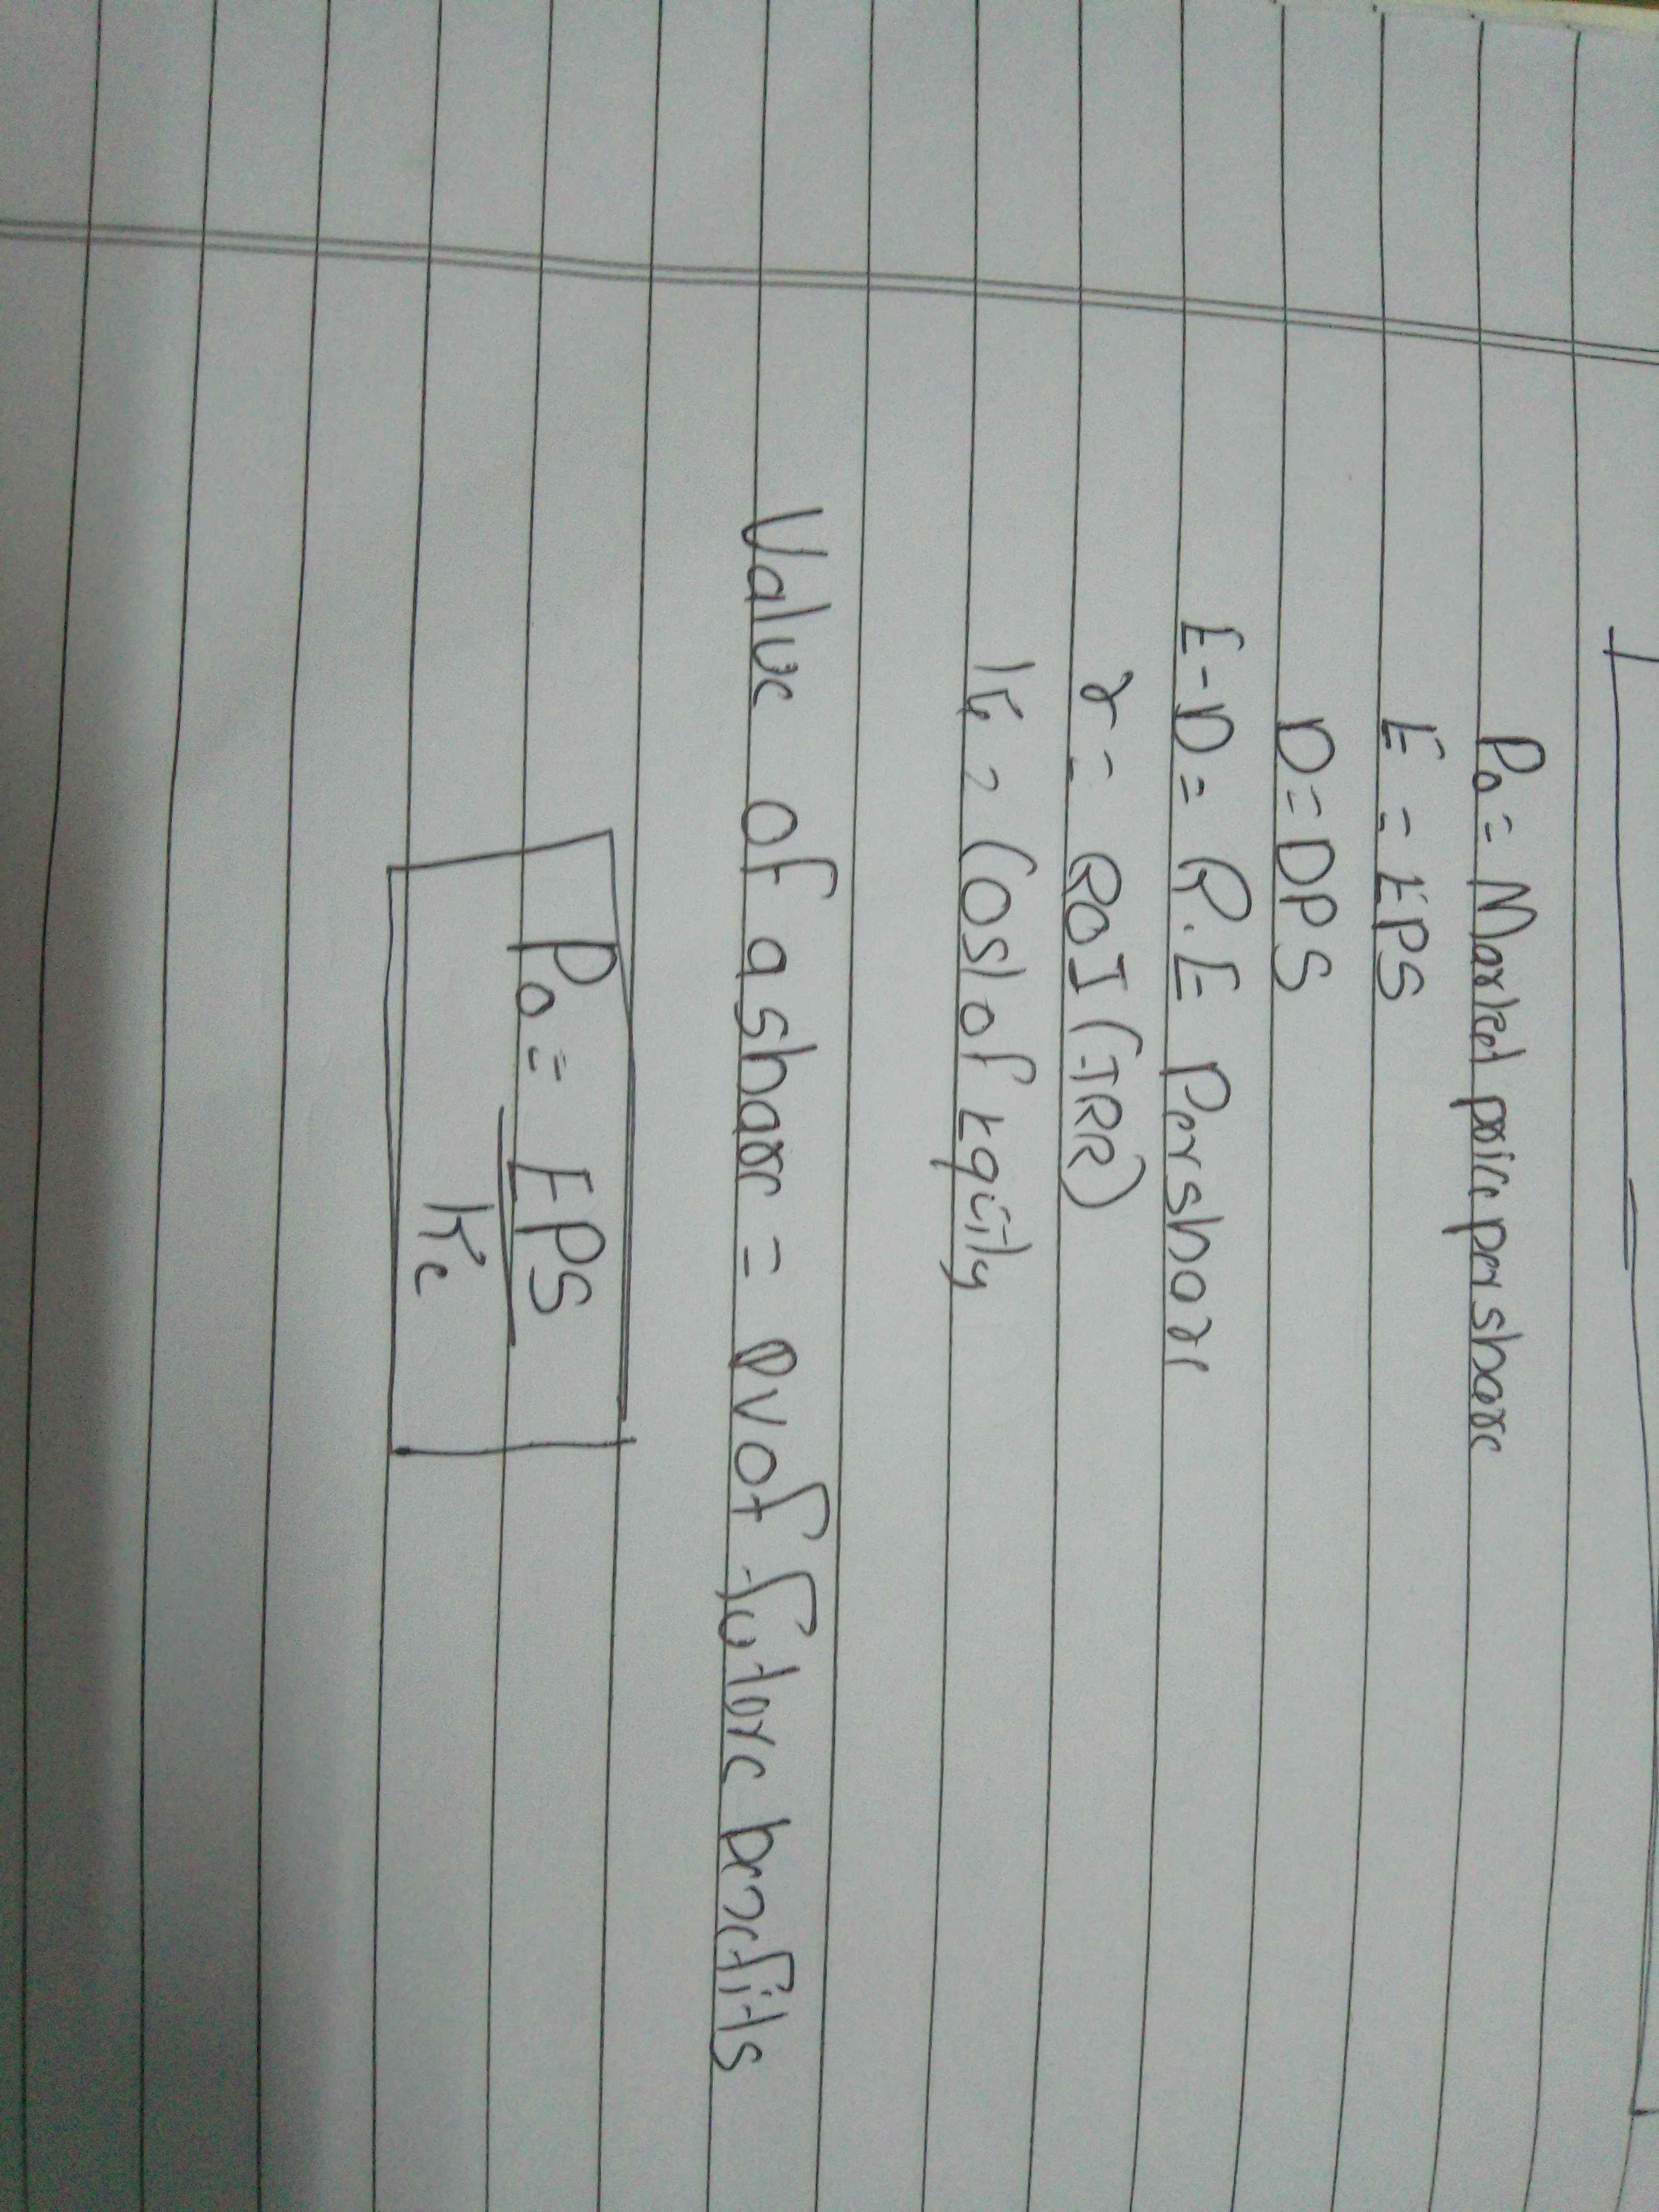 P₀ = Market price per share
E = EPS
D = DPS
E - D = R.E Per share
r = ROI (IRR)
Ke = Cost of Equity
Value of a share = PV of future benefits
P₀ = EPS
Ke